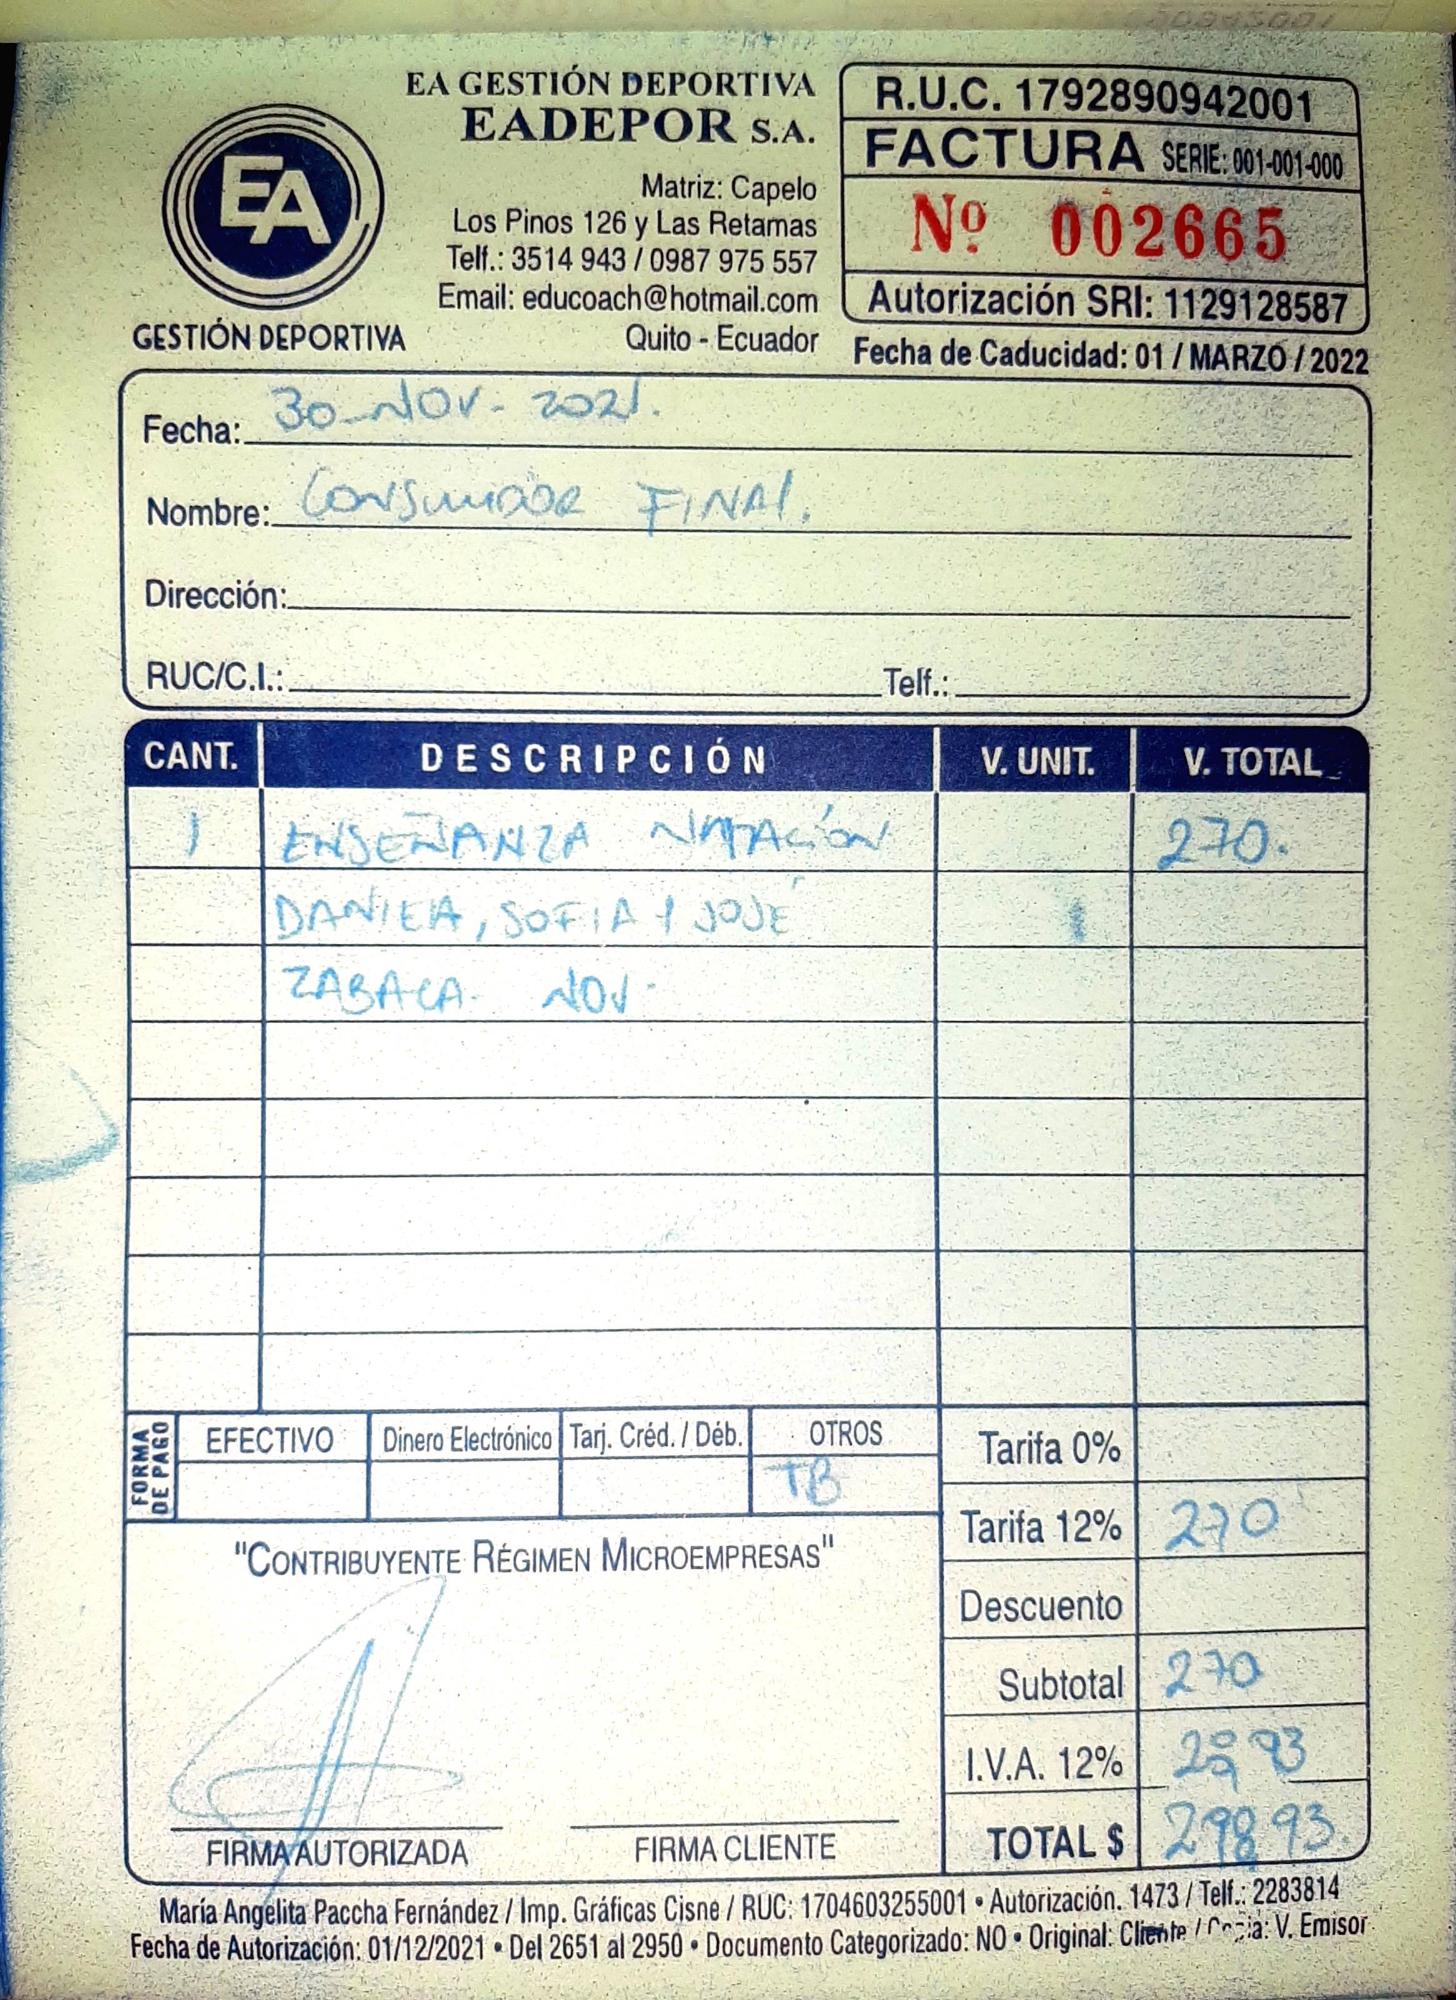 EA GESTIÓN DEPORTIVA
EADEPOR S.A.
EA
GESTIÓN DEPORTIVA
Matriz: Capelo
Los Pinos 126 y Las Retamas
Telf.: 3514 943 / 0987 975 557
Email: educoach@hotmail.com
Quito - Ecuador
R.U.C. 1792890942001
FACTURA SERIE: 001-001-000
Nº 002665
Autorización SRI: 1129128587
Fecha de Caducidad: 01 / MARZO / 2022
Fecha: 30-NOV-2021.
Nombre: CONSUMIDOR FINAL.
Dirección:
RUC/C.I.: Telf.:
CANT. DESCRIPCIÓN V. UNIT. V. TOTAL
1 ENSEÑANZA NATACIÓN 270.
DANIELA, SOFIA Y JOSÉ
ZABALA. NOV.
FORMA DE PAGO
EFECTIVO Dinero Electrónico Tarj. Créd. / Déb. OTROS
TB
Tarifa 0%
Tarifa 12% 270
Descuento
Subtotal 270
I.V.A. 12% 93
TOTAL $ 298,93.
"CONTRIBUYENTE RÉGIMEN MICROEMPRESAS"
FIRMA AUTORIZADA FIRMA CLIENTE
María Angelita Paccha Fernández / Imp. Gráficas Cisne / RUC: 1704603255001 • Autorización. 1473 / Telf.: 2283814
Fecha de Autorización: 01/12/2021 • Del 2651 al 2950 • Documento Categorizado: NO • Original: Cliente / Copia: V. Emisor